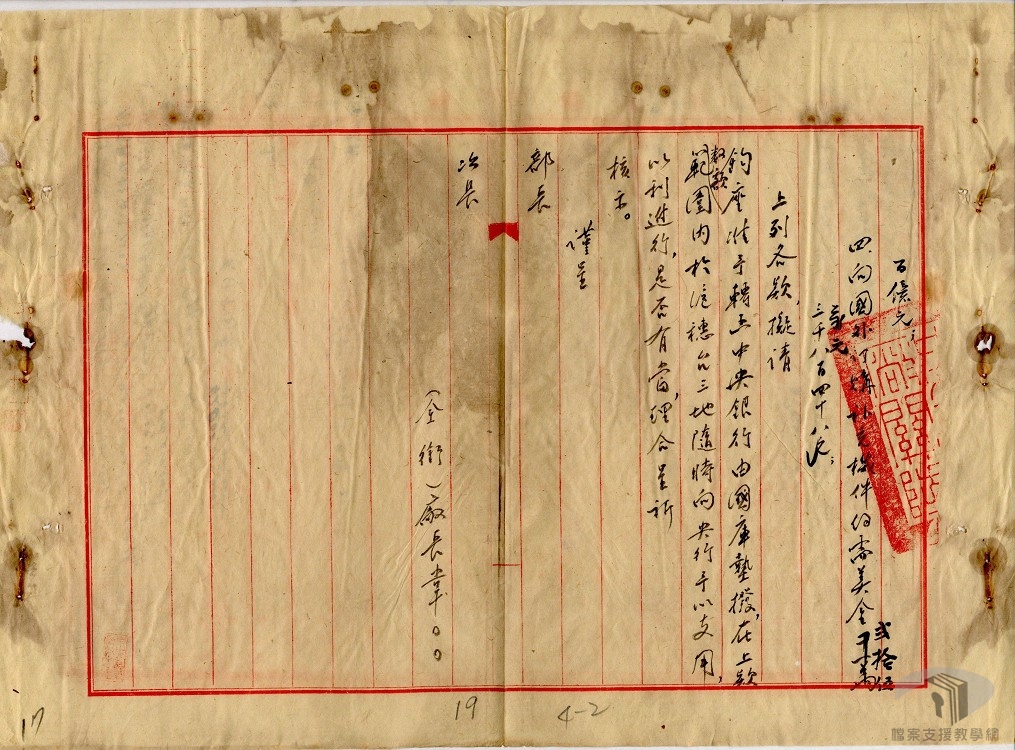 百億元；
四、向國外訂購 機件約需美金貳拾伍萬
三千八百四十八元；
美元
上列各款，擬請
鈞座准予轉函中央銀行由國庫墊撥，在上款
數額
範圍內於滬穗台三地隨時向央行予以支用，
以利進行，是否有當，理合呈祈
核示。
謹呈
部長
次長
（全銜）廠長韋○○
19
4-2
17
檔案支援教學網